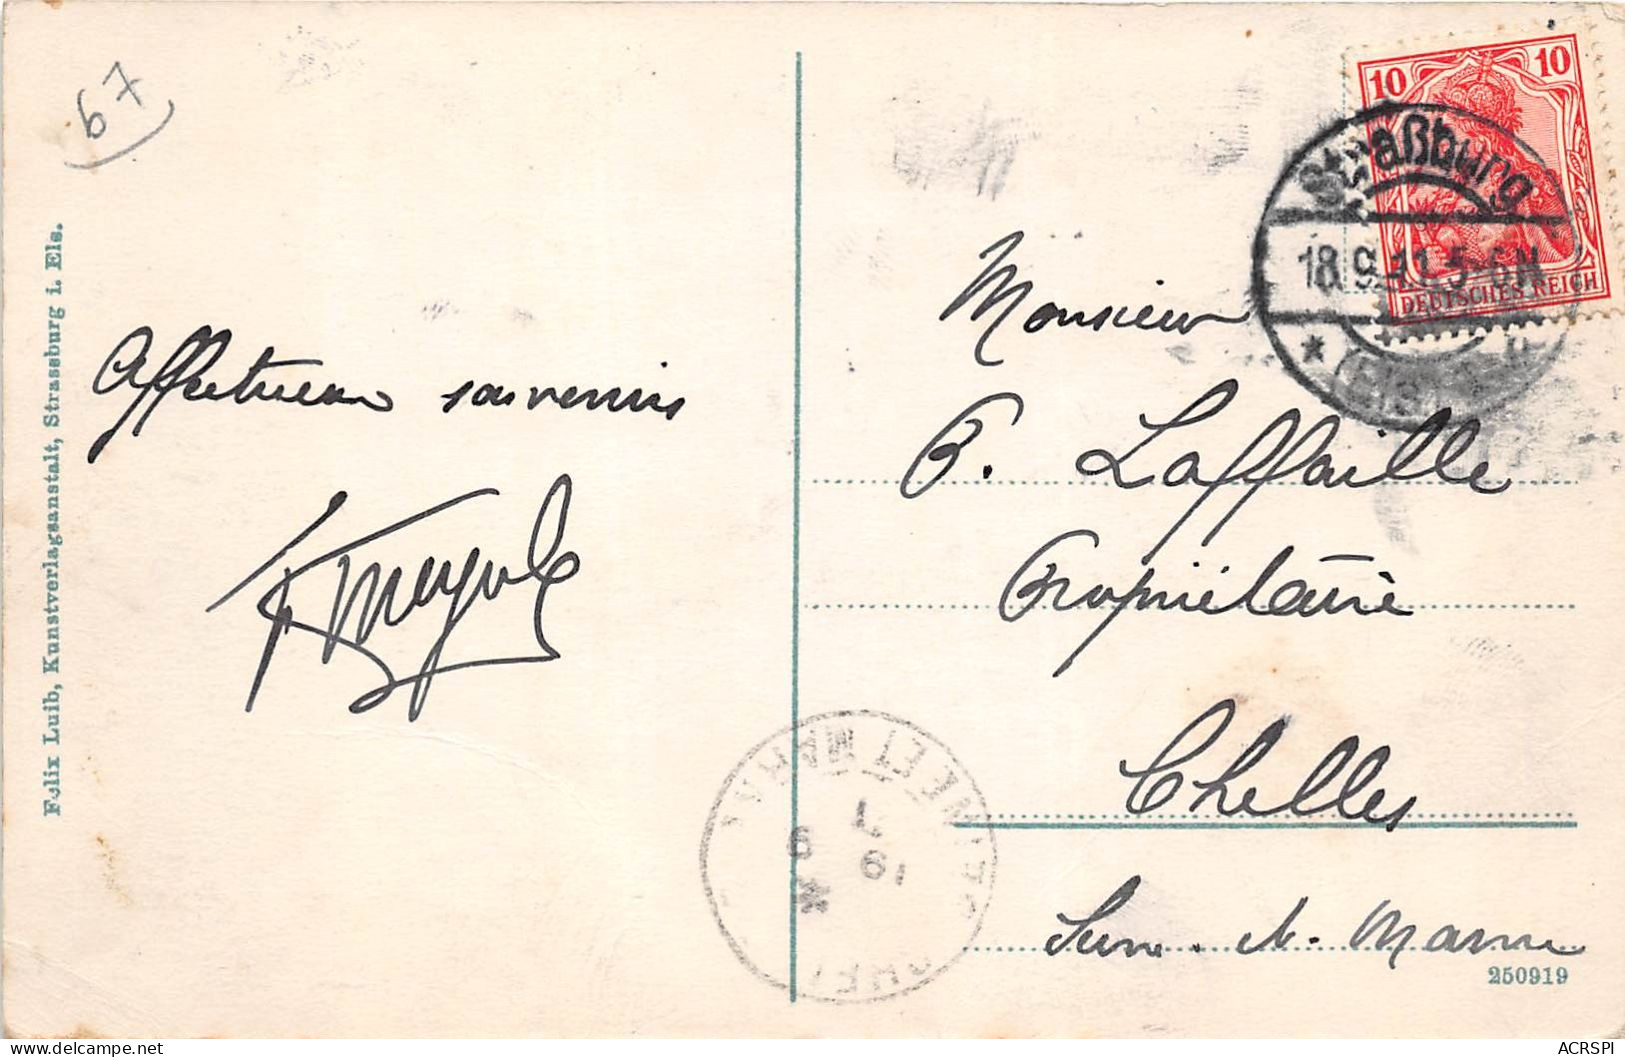 67
Felix Luib, Kunstverlagsanstalt, Strassburg i. Els.
Affectueux souvenirs
10 10
DEUTSCHES REICH
Straßburg
18.9.11.5-6N
* (Els.)
Monsieur
P. Laffaille
Propriétaire
Chelles
Seine-et-Marne
250919
SEINE ET MARNE
19 9
CHEL
ACRSPI